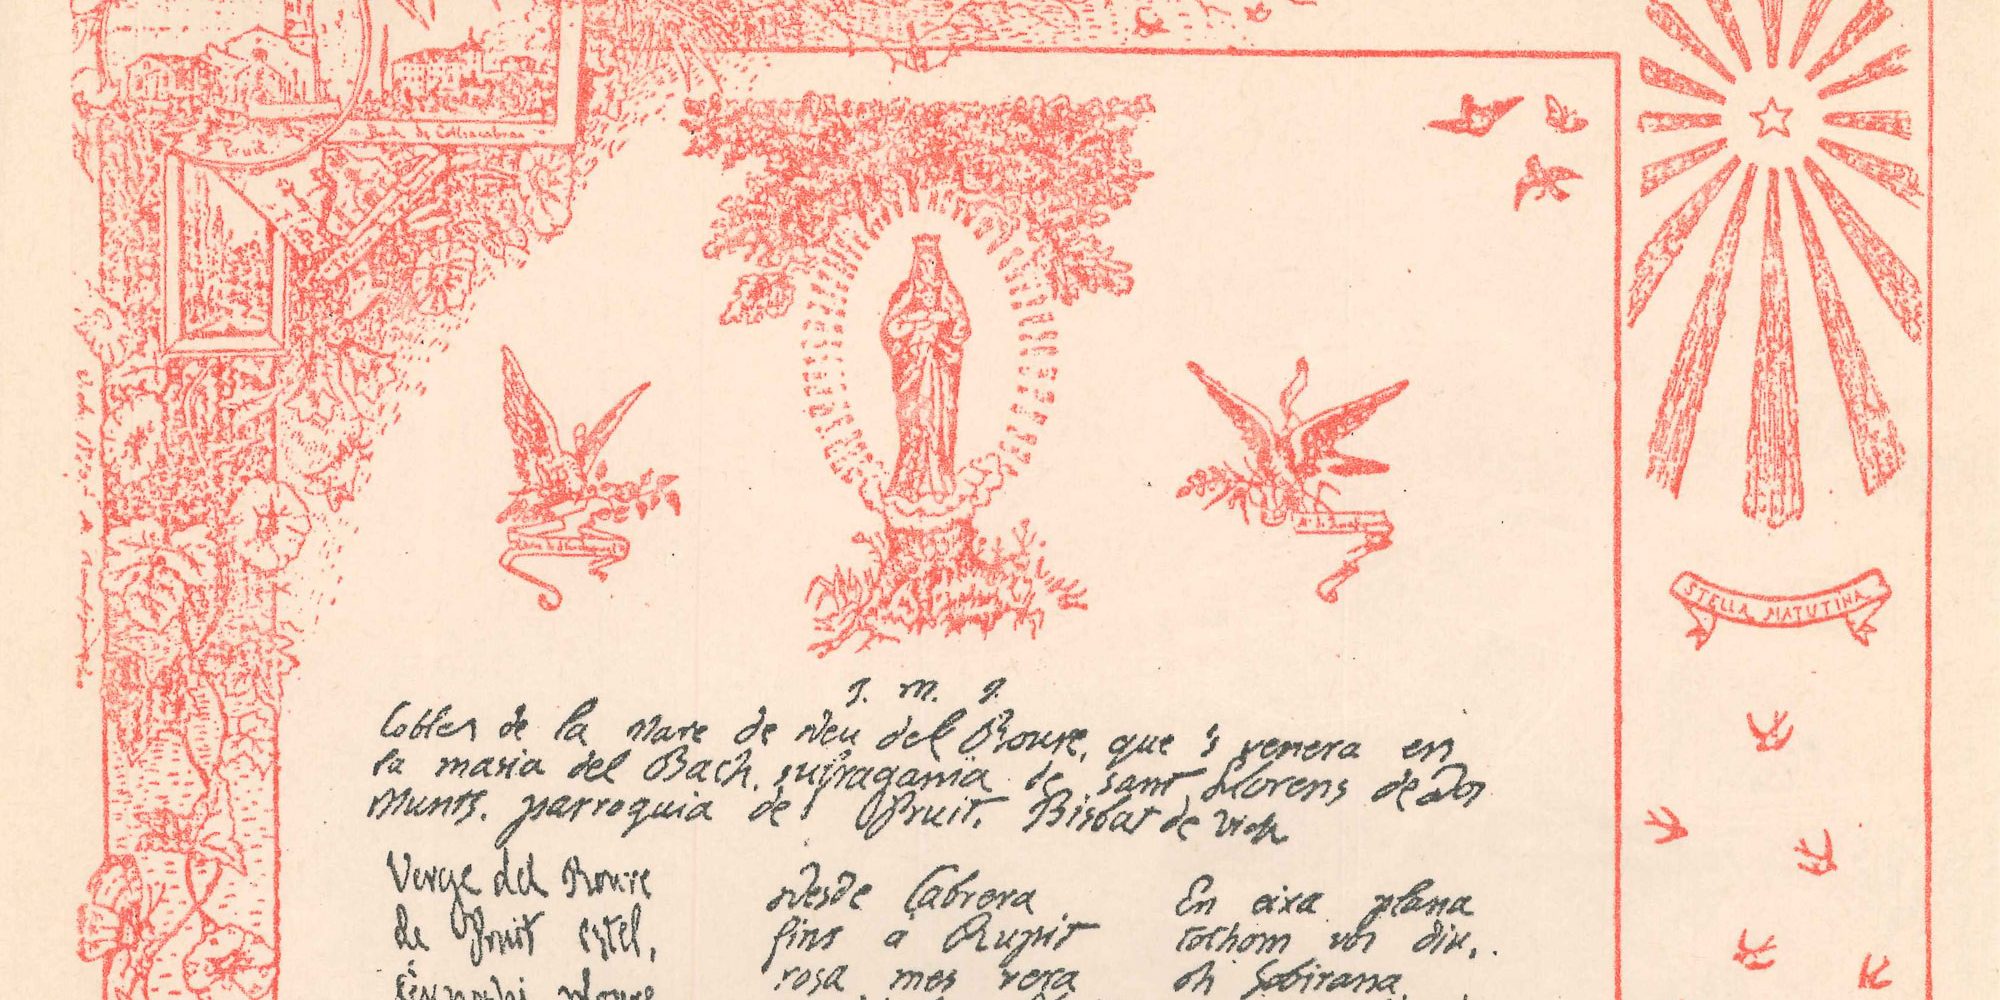 Pruit
STELLA MATUTINA
J. M. J.
Cobles de la Mare de Deu del Roure, que 's venera en
la masia del Bach, sufraganïa de sant Llorens de Dos
Munts. parroquia de Pruit. Bisbat de Vich
Verge del Roure
de Pruit estel,
ploure
Desde Cabrera
fins a Rupit
rosa mes vera
En eixa plana
tothom vos diu,
oh Sobirana